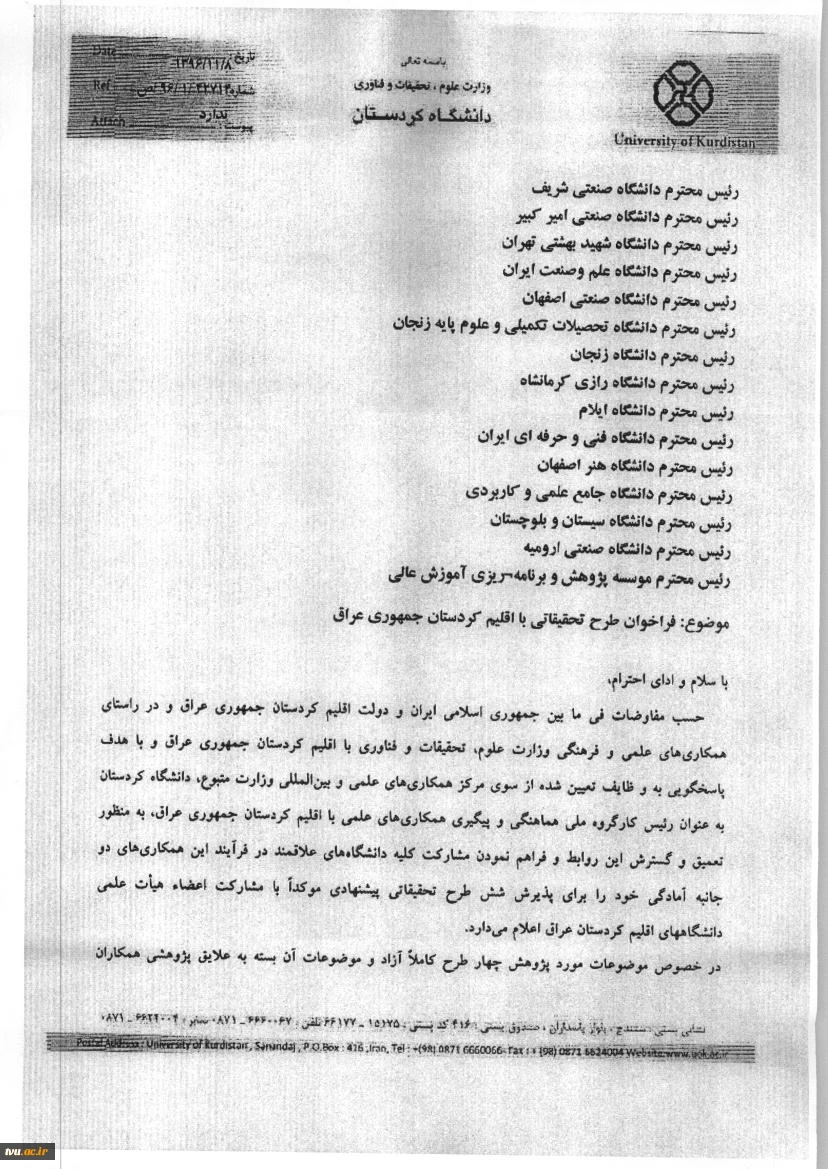 باسمه تعالی
وزارت علوم ، تحقیقات و فناوری
دانشگاه کردستان
Date
تاریخ ۱۳۹۶/۱۱/۸
Ref
شماره
Attach
ندارد
پیوست :
University of Kurdistan
رئیس محترم دانشگاه صنعتی شریف
رئیس محترم دانشگاه صنعتی امیر کبیر
رئیس محترم دانشگاه شهید بهشتی تهران
رئیس محترم دانشگاه علم وصنعت ایران
رئیس محترم دانشگاه صنعتی اصفهان
رئیس محترم دانشگاه تحصیلات تکمیلی و علوم پایه زنجان
رئیس محترم دانشگاه زنجان
رئیس محترم دانشگاه رازی کرمانشاه
رئیس محترم دانشگاه ایلام
رئیس محترم دانشگاه فنی و حرفه ای ایران
رئیس محترم دانشگاه هنر اصفهان
رئیس محترم دانشگاه جامع علمی و کاربردی
رئیس محترم دانشگاه سیستان و بلوچستان
رئیس محترم دانشگاه صنعتی ارومیه
رئیس محترم موسسه پژوهش و برنامه-ریزی آموزش عالی
موضوع: فراخوان طرح تحقیقاتی با اقلیم کردستان جمهوری عراق
با سلام و ادای احترام،
حسب مفاوضات فی ما بین جمهوری اسلامی ایران و دولت اقلیم کردستان جمهوری عراق و در راستای
همکاری‌های علمی و فرهنگی وزارت علوم، تحقیقات و فناوری با اقلیم کردستان جمهوری عراق و با هدف
پاسخگویی به و ظایف تعیین شده از سوی مرکز همکاری‌های علمی و بین‌المللی وزارت متبوع، دانشگاه کردستان
به عنوان رئیس کارگروه ملی هماهنگی و پیگیری همکاری‌های علمی با اقلیم کردستان جمهوری عراق، به منظور
تعمیق و گسترش این روابط و فراهم نمودن مشارکت کلیه دانشگاه‌های علاقمند در فرآیند این همکاری‌های دو
جانبه آمادگی خود را برای پذیرش شش طرح تحقیقاتی پیشنهادی موکداً با مشارکت اعضاء هیأت علمی
دانشگاههای اقلیم کردستان عراق اعلام می‌دارد.
در خصوص موضوعات مورد پژوهش چهار طرح کاملاً آزاد و موضوعات آن بسته به علایق پژوهشی همکاران
نشانی پستی : سنندج ، بلوار پاسداران ، صندوق پستی : ۴۱۶ کد پستی : ۱۵۱۷۵ ـ ۶۶۱۷۷ تلفن : ۶۶۶۰۰۶۷ ـ ۰۸۷۱ نمابر : ۶۶۲۴۰۰۴ ـ ۰۸۷۱
Postal Address : University of Kurdistan, Sanandaj , P.O.Box : 416 ,Iran, Tel : +(98) 0871 6660066- Fax : + (98) 0871 6624004 Website:www.uok.ac.ir
tvu.ac.ir